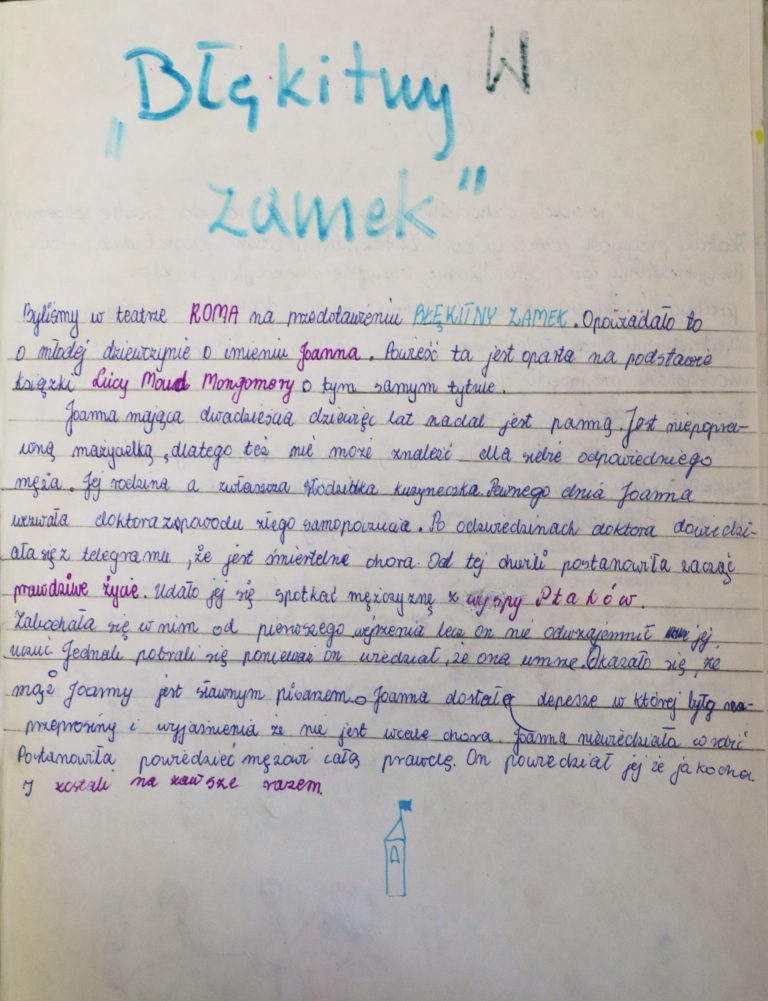 „Błękitny W
zamek"
Byliśmy w teatrze ROMA na przedstawieniu BŁĘKITNY ZAMEK. Opowiadało to
o młodej dziewczynie o imieniu Joanna. Powieść ta jest oparta na podstawie
książki Lucy Moud Mongomery o tym samym tytule.
Joanna mająca dwadzieścia dziewięć lat nadal jest panną. Jest niepopra-
wną marzycielką, dlatego też nie może znaleść dla siebie odpowiedniego
męża. Jej rodzina a zwłaszcza słodziutka kuzyneczka. Pewnego dnia Joanna
wezwała doktora zspowodu złego samopoczucia. Po odwiedzinach doktora dowiedzi-
ała się z telegramu, że jest śmiertelne chora. Od tej chwili postanowiła zacząć
prawdziwe życie. Udało jej się spotkać mężczyznę z wyspy Ptaków.
Zakochała się w nim od pierwszego wejrzenia lecz on nie odwzajemnił jej
uczuć Jednak pobrali się ponieważ on wiedział, że ona umrze. Okazało się, że
mąż Joanny jest sławnym pisarzem. Joanna dostała depesze w której były
przeprosiny i wyjaśnienia że nie jest wcale chora. Joanna niewiedziała co robić
Postanowiła powiedzieć mężowi całą prawdę. On powiedział jej że ją kocha
I zostali na zawsze razem.